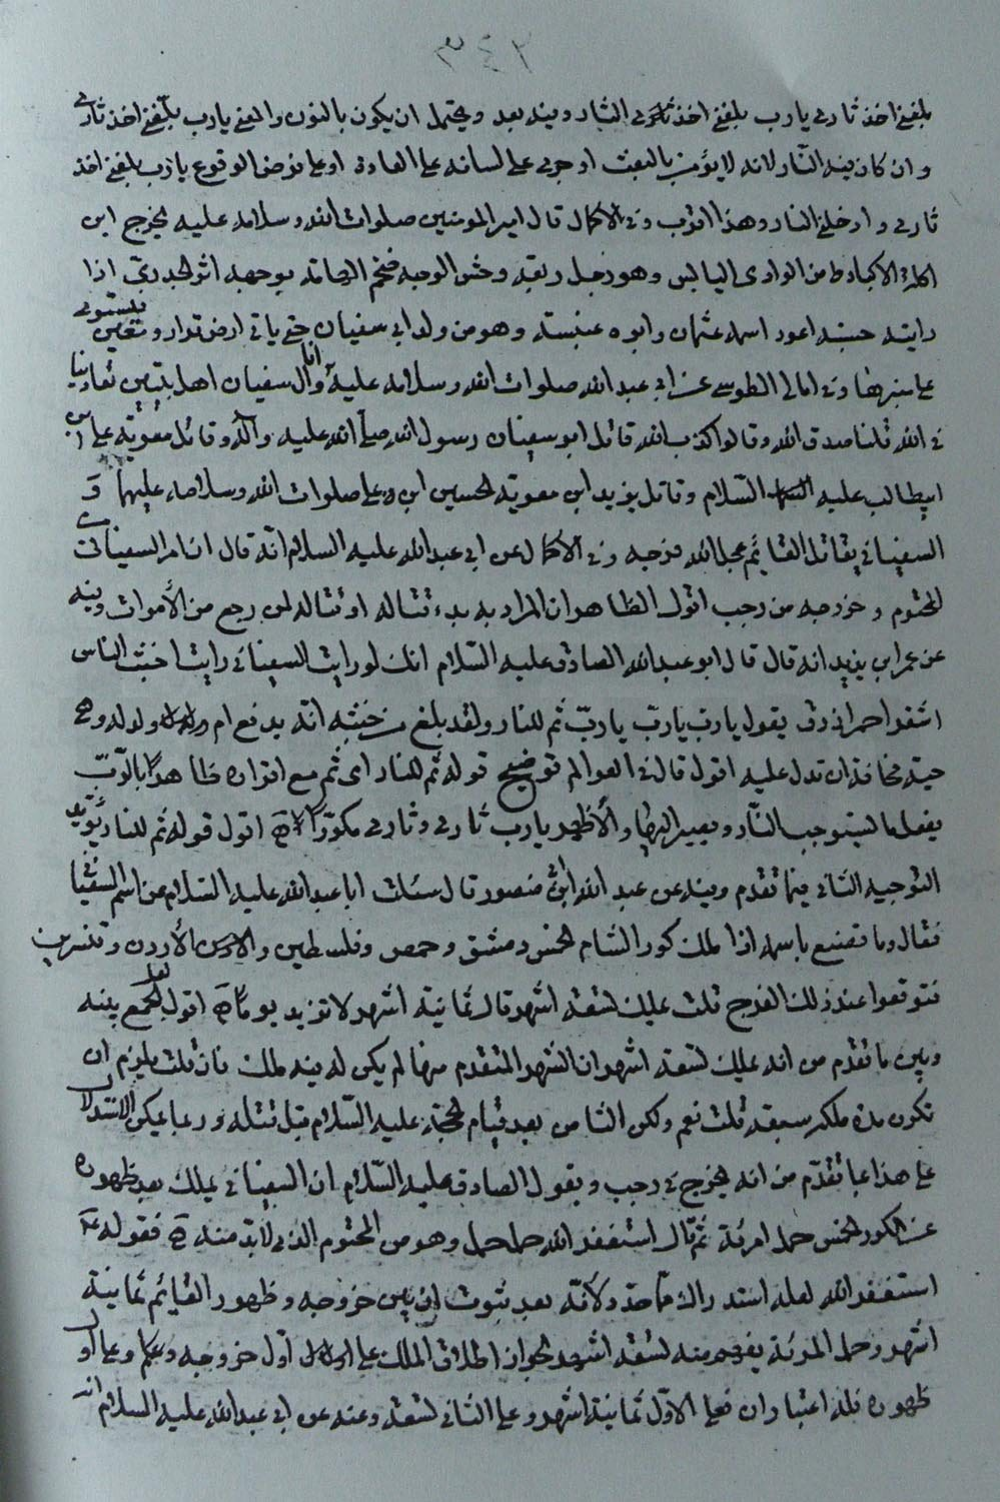 ٢٤٣
بلغني اخذ ثاري يارب بلغني اخذ ثم الى النار وفيه بعد ويحتمل ان يكون بالنون والمعنى يارب بلغني اخذ ثاري
وان كان فيه النار لانه لا يؤمن بالبعث او جرى على لسانه على العادة او على فرض الوقوع يارب بلغني اخذ
ثاري وادخلني النار وهذا اقرب وفي الاكمال قال امير المومنين صلوات الله وسلامه عليه يخرج ابن
اكلة الاكباد من الوادي اليابس وهو رجل ربعه وحش الوجه ضخم الهامة بوجهه اثر الجدري اذا
رايته حسبته اعور اسمه عثمان وابوه عنبسة وهو من ولد ابي سفيان حتى ياتي ارض قرار ومعين فيستوي
على منبرها وفي امالي الطوسي عن ابي عبد الله صلوات الله وسلامه عليه انا وآل سفيان اهل بيتين تعادينا
في الله قلنا صدق الله وقالوا كذب الله قاتل ابو سفيان رسول الله صلى الله عليه وآله وقاتل معوية علي ابن
ابيطالب عليه السلام وقاتل يزيد ابن معوية الحسين ابن علي صلوات الله وسلامه عليهما و
السفياني يقاتل القائم عجل الله فرجه وفي الاكمال عن ابي عبدالله عليه السلام انه قال ان امر السفياني
المحتوم وخروجه من رجب اقول الظاهر ان المراد به بدء قتاله او قتاله لمن رجع من الأموات وفيه
عن عمر ابن يزيد انه قال قال ابو عبدالله الصادق عليه السلام انك لو رايت السفياني رايت اخبث الناس
اشقر احمر ازرق يقول يارب يارب يارب ثم للنار ولقد بلغ من خبثه انه يدفن ام ولد له وهي
حية مخافة ان تدل عليه اقول قال في العوالم توضيح قوله ثم للنار اي ثم مع اقراره ظاهرا بالرب
يفعل ما يستوجب النار ويصير اليها والأظهر يارب ثاري وثاري مكررا اقول قوله ثم للنار يؤيد
التوجيه الثاني فيما تقدم وفيه عن عبد الله ابن منصور قال سئلت ابا عبدالله عليه السلام عن اسم السفياني
فقال وما تصنع باسمه اذا ملك كور الشام الخمس دمشق وحمص وفلسطين والأردن وقنسرين
فتوقعوا عند ذلك الفرج قلت يملك تسعة اشهر قال لا ثمانية اشهر لا تزيد يوما اقول لعل الجمع بينه
وبين ما تقدم من انه يملك تسعة اشهر ان الشهر المتقدم منها لم يكن له فيه ملك فان قلت يلزم ان
تكون مدة ملكه سبعة قلت نعم ولكن الثامن بعد قيام الحجة عليه السلام قبل قتله وربما يمكن الاستدلال
على هذا بما تقدم من انه يخرج في رجب ويقول الصادق عليه السلام ان السفياني يملك بعد ظهوره
على الكور الخمس حمل امرئة ثم قال استغفر الله حمل جمل وهو من المحتوم الذي لابد منه فقوله
استغفر الله لعله استدراك ولانه بعد ثبوت ان بين خروجه وظهور القائم ثمانية
اشهر وحمل المرئة يفهم منه تسعة اشهر لجواز اطلاق الملك على اول خروجه وعلى
ظهوره فله اعتباران فعلى الاول ثمانية اشهر وعلى الثاني تسعة وعنه عن ابي عبدالله عليه السلام انه